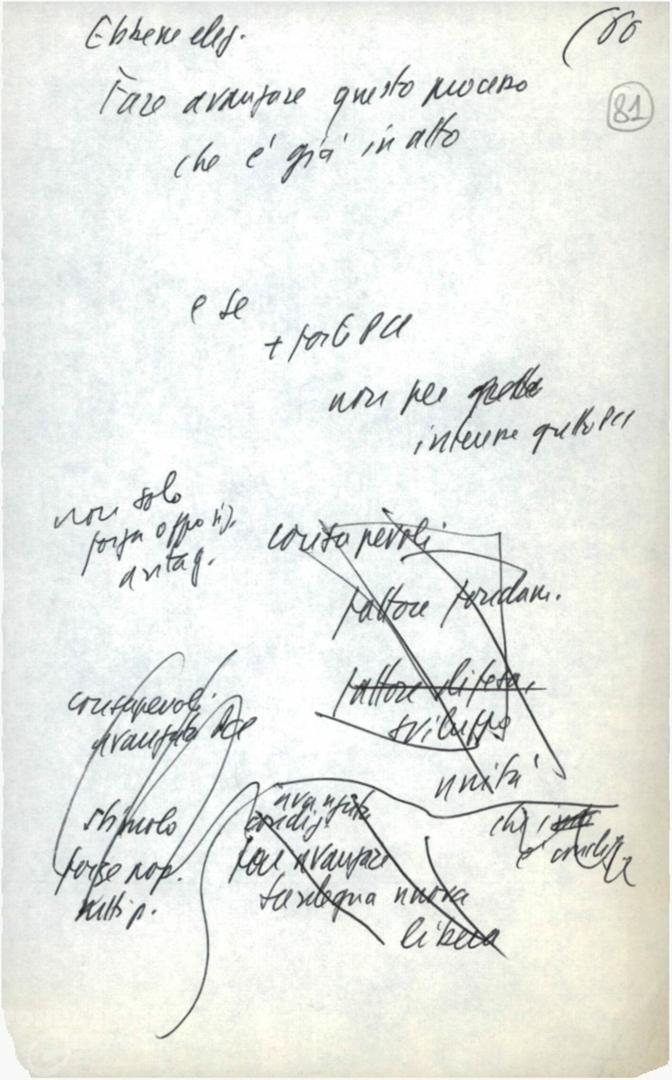 Ebbene eleg.
(60
81
Fare avanzare questo processo
che e' già in atto
e se
+ forte PCI
non per quello
interne quello PCI
non solo
forza opposiz.
antag.
consapevoli
fattore fondam.
fattore difesa,
sviluppo
unità
consapevoli
avanzata
stimolo
forze pop.
avanzata
condiz.
fare avanzare
Sardegna nuova
libera
che
e'